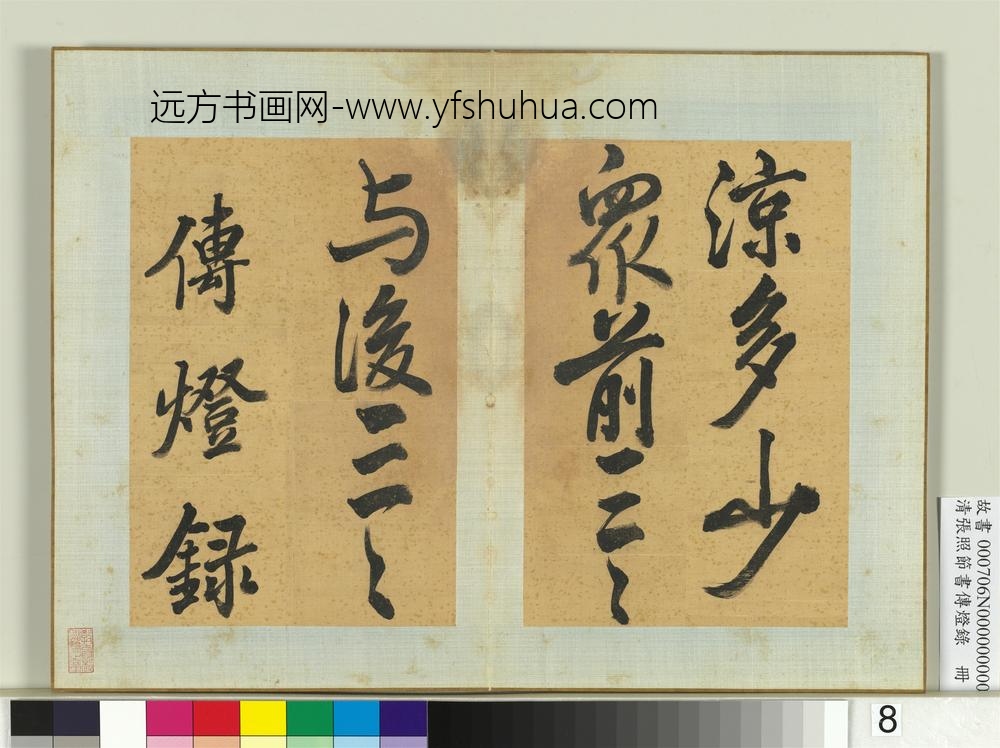 远方书画网-www.yfshuhua.com
涼多少
眾前三三
与後三三
傳燈錄
故書 000706N000000000
清張照節書傳燈錄 冊
8